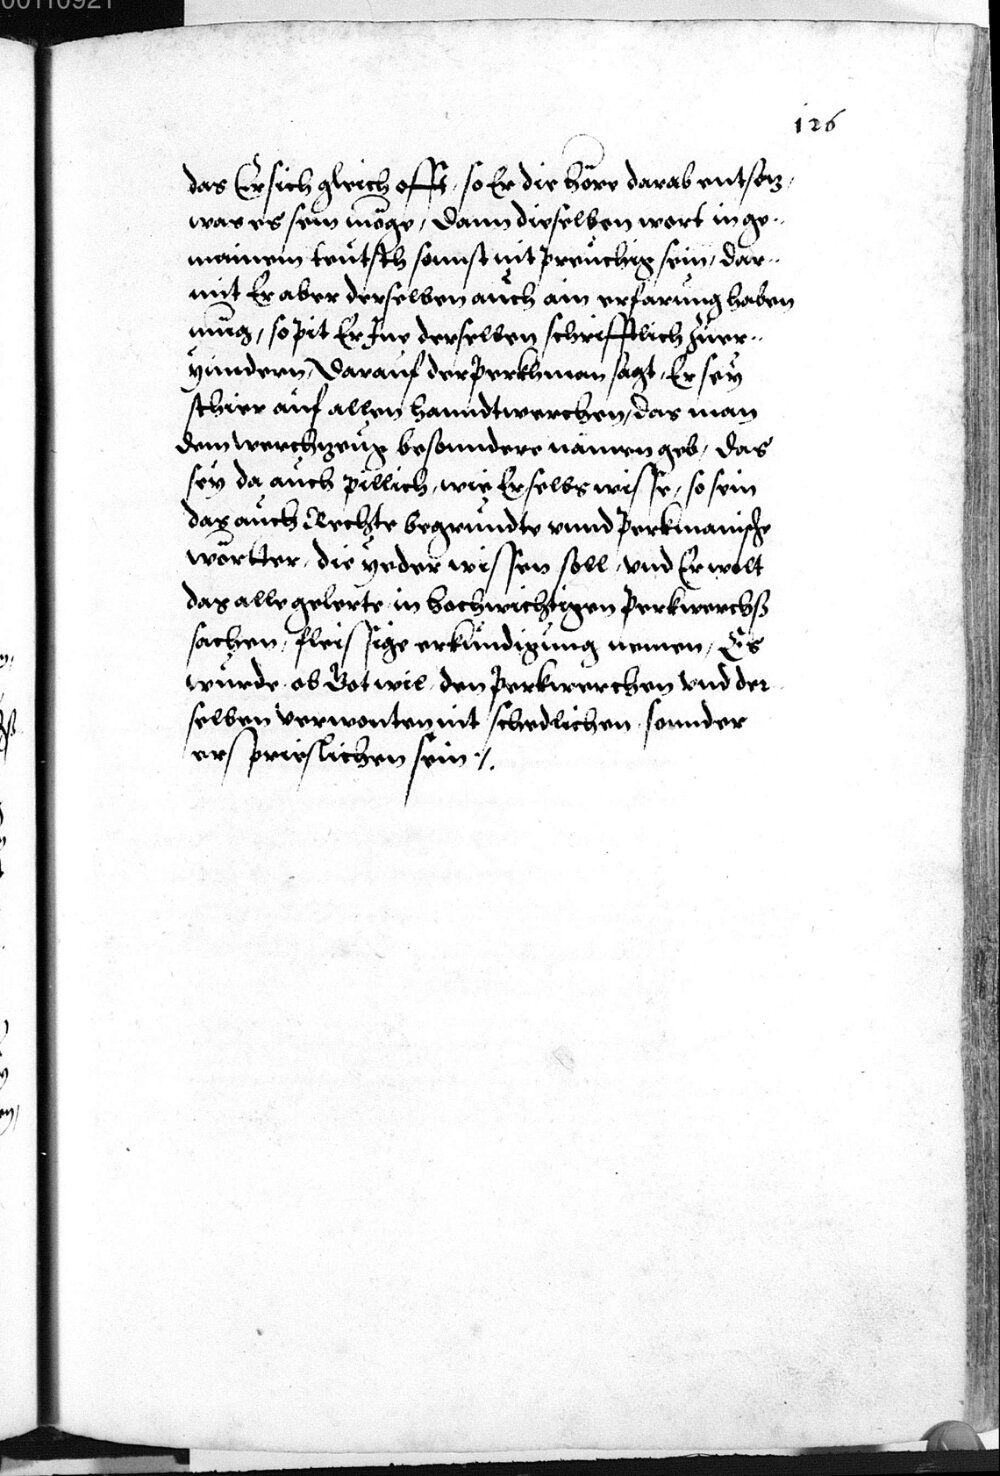 00110921
126
das Er sich gleich offt, so Er die höre darab entsetz,
was es sein möge, Dann dieselben wort in ge-
mainem teütsch sonnst nit preüchig sein, dar-
mit Er aber derselben auch ain erfarung haben
müg, so pit Er Ine derselben schrifftlich zuer-
yndern, Darauf der Perkhman sagt, Er sey
schier auf allen hanndtwerchen, das man
dem werchzeug besonndere namen geb, das
sey da auch pillich, wie Er selbs wisse, so sein
das auch Rechte begrundte vnnd Perkmanische
wörtter, die yeder wissen soll, vnd Er wolt
das alle gelerte in hochwichtigen Perkwerchß
sachen, fleissige erkundigung nemen, Es
wurde ob Got wil, den Perkwerchen vnd der
selben verwonten nit schedlichen, sonnder
ersprieslichen sein ./.